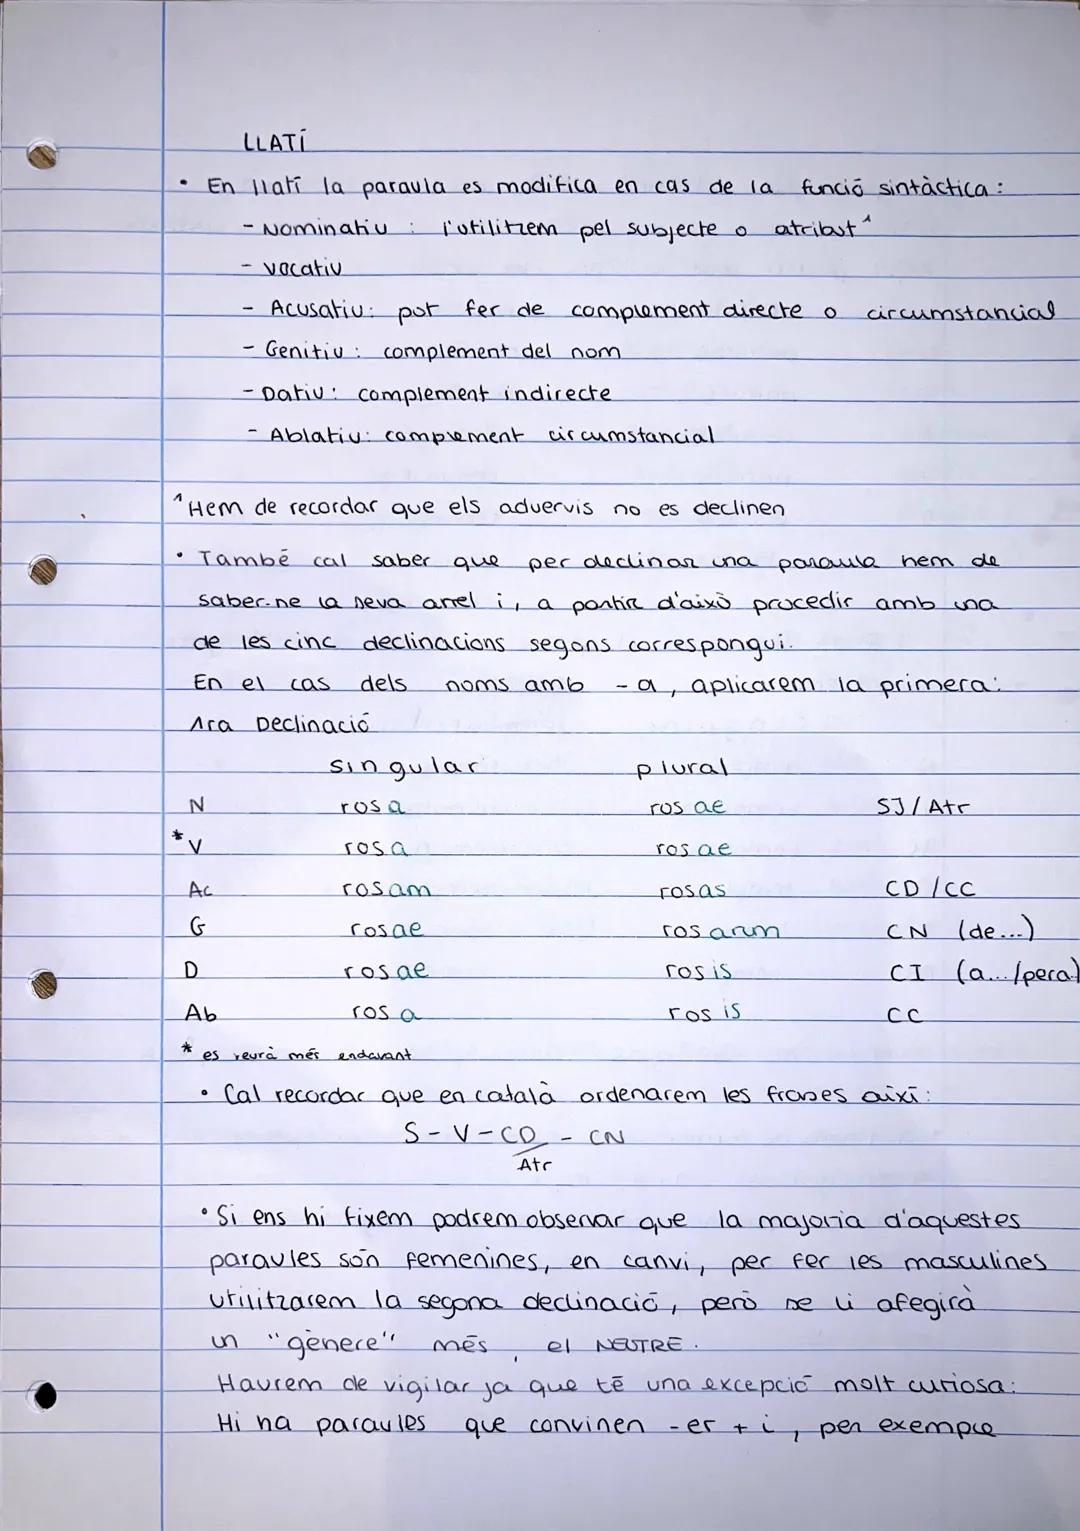 LLATÍ
• En llatí la paraula es modifica en cas de la funció sintàctica:
- Nominatiu : l'utilitzem pel subjecte o atribut ¹
- vocatiu
- Acusatiu: pot fer de complement directe o circumstancial
- Genitiu : complement del nom
- Datiu: complement indirecte
- Ablatiu: complement circumstancial
¹ Hem de recordar que els advervis no es declinen
• També cal saber que per declinar una paraula hem de
saber-ne la seva arrel i, a partir d'això procedir amb una
de les cinc declinacions segons correspongui.
En el cas dels noms amb -a, aplicarem la primera:
1ra Declinació
singular plural
N rosa rosae SJ/Atr
* V rosa rosae
Ac rosam rosas CD/CC
G rosae rosarum CN (de...)
D rosae rosis CI (a.../per a)
Ab rosa rosis CC
* es veurà més endavant
• Cal recordar que en català ordenarem les frases així:
S - V - CD - CN
Atr
• Si ens hi fixem podrem observar que la majoria d'aquestes
paraules són femenines, en canvi, per fer les masculines
utilitzarem la segona declinació, però se li afegirà
un "gènere" més, el NEUTRE.
Haurem de vigilar ja que té una excepció molt curiosa:
Hi ha paraules que convinen -er + i, per exemple